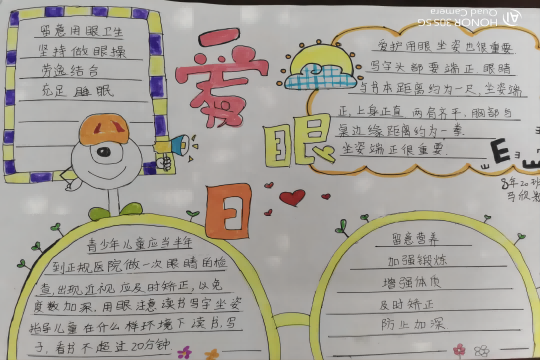 留意用眼卫生
坚持做眼操
劳逸结合
充足睡眠
爱
眼
日
爱护用眼坐姿也很重要
写字头部要端正,眼睛
与书本距离约为一尺,坐姿端
正,上身正直,两肩齐平,胸部与
桌边缘距离约为一拳.
坐姿端正很重要.
E
青少年儿童应当半年
到正规医院做一次眼睛的检
查,出现近视应及时矫正,以免
度数加深,用眼注意读书写字坐姿
指导儿童在什么样环境下读书,写
字,看书不超过20分钟.
留意营养
加强锻炼
增强体质
及时矫正
防止加深
HONOR 30S 5G
AI Quad Camera